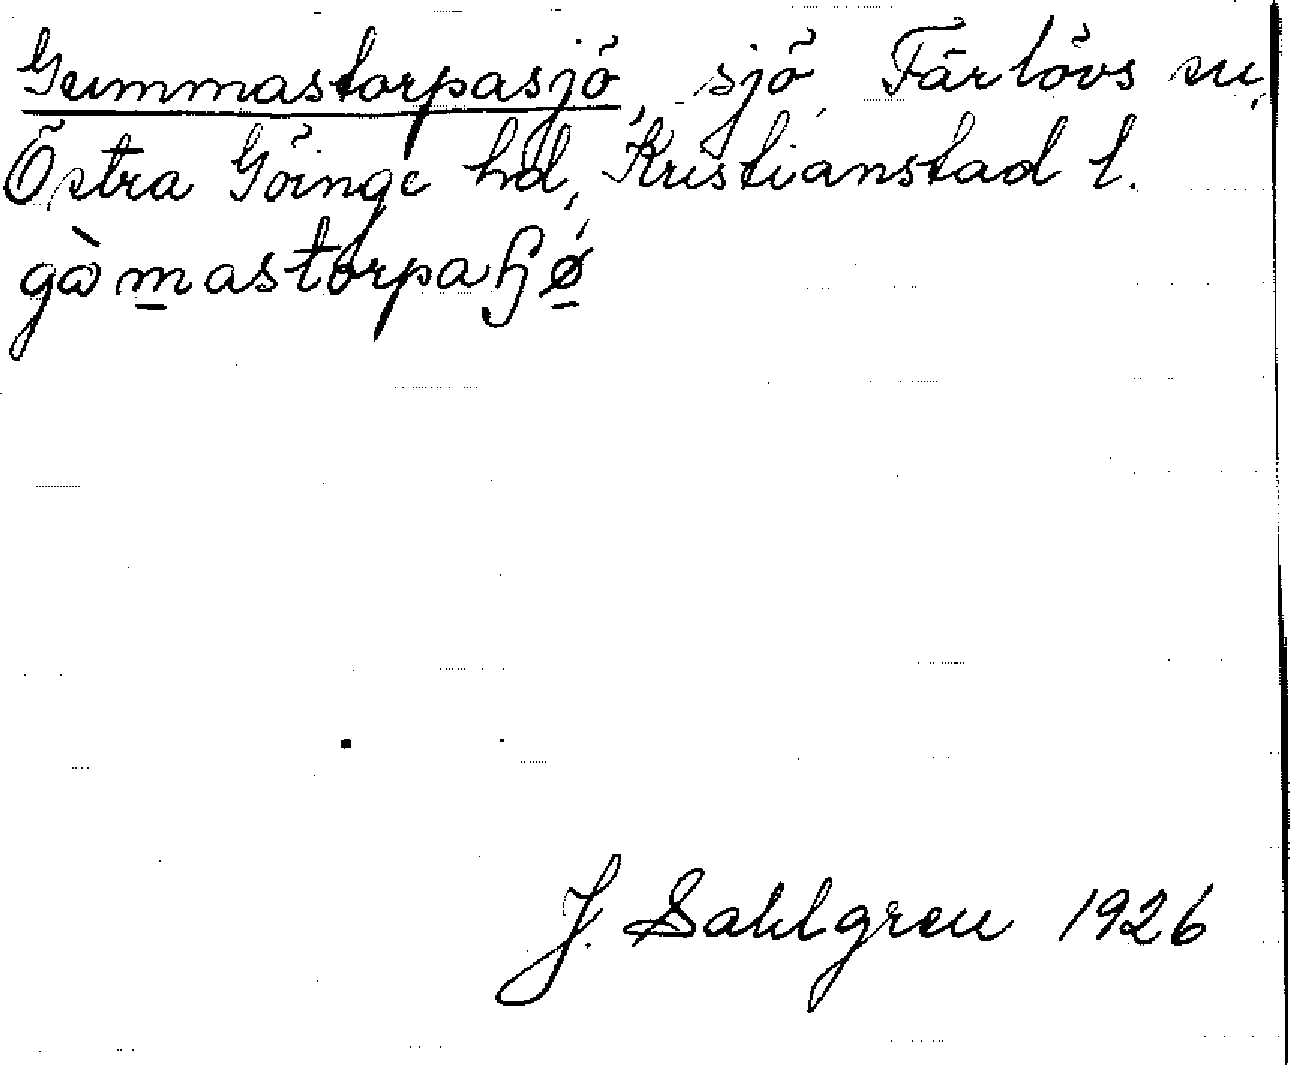 Gummastorpasjö, sjö, Färlövs sn,
Östra Göinge hd, Kristianstad l.
J. Sahlgren 1926